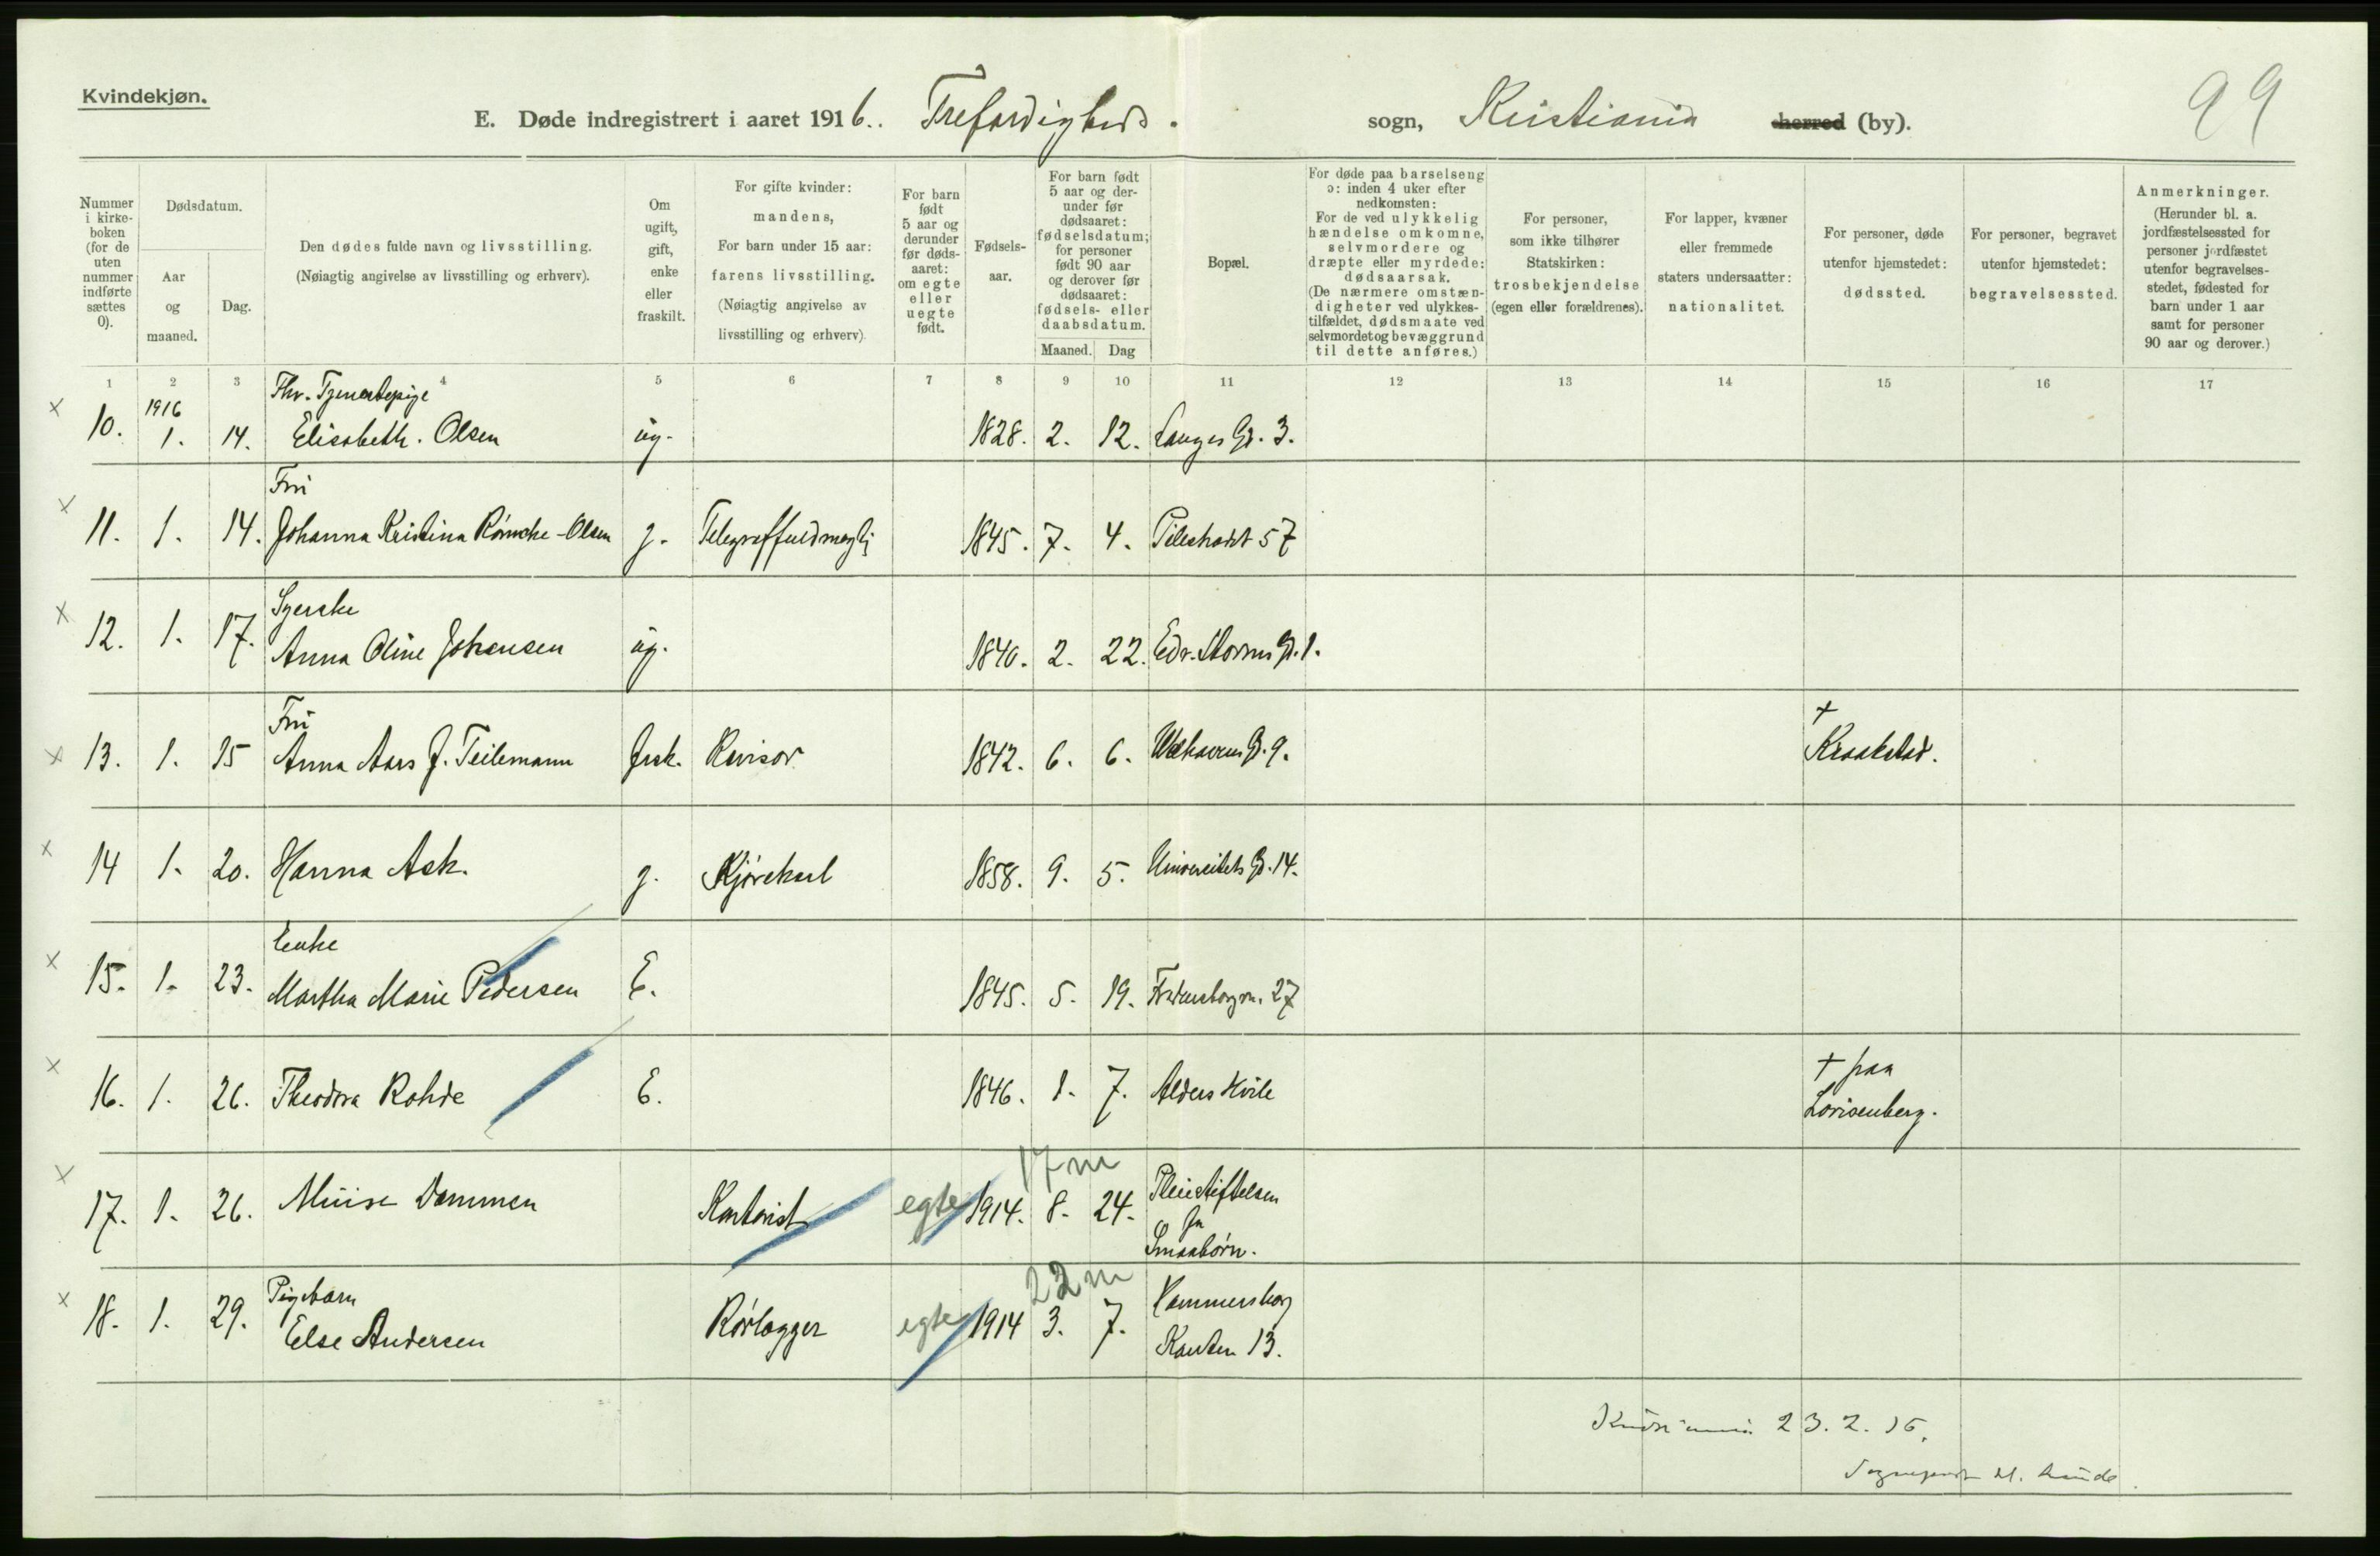 Kvindekjøn.
E. Døde indregistrert i aaret 1916. Trefoldigheds. sogn, Kristiania herred (by).
99
Nummer i kirke-boken (for de uten nummer indførte sættes 0).
Dødsdatum.
Aar og maaned.
Dag.
Den dødes fulde navn og livsstilling.
(Nøiagtig angivelse av livsstilling og erhverv).
Om ugift, gift, enke eller fraskilt.
For gifte kvinder: mandens,
For barn under 15 aar: farens livsstilling.
(Nøiagtig angivelse av livsstilling og erhverv)
For barn født 5 aar og derunder før døds-aaret: om egte eller uegte født.
Fødsels-aar.
For barn født 5 aar og der-under før dødsaaret: fødselsdatum; for personer født 90 aar og derover før dødsaaret: fødsels- eller daabsdatum.
Maaned. Dag
Bopæl.
For døde paa barselseng ɔ: inden 4 uker efter nedkomsten:
For de ved ulykkelig hændelse omkomne, selvmordere og dræpte eller myrdede: dødsaarsak.
(De nærmere omstæn-digheter ved ulykkes-tilfældet, dødsmaate ved selvmordet og bevæggrund til dette anføres.)
For personer, som ikke tilhører Statskirken: trosbekjendelse (egen eller forældrenes).
For lapper, kvæner eller fremmede staters undersaatter: nationalitet.
For personer, døde utenfor hjemstedet: dødssted.
For personer, begravet utenfor hjemstedet: begravelsessted.
Anmerkninger.
(Herunder bl. a. jordfæstelsessted for personer jordfæstet utenfor begravelses-stedet, fødested for barn under 1 aar samt for personer 90 aar og derover.)
1 2 3 4 5 6 7 8 9 10 11 12 13 14 15 16 17
1916 Fhv. Tjenestepige
x 10. 1. 14. Elisabeth. Olsen ug. 1828. 2. 12. Langes Gd. 3.
Fru
x 11. 1. 14. Johanna Kristina Rømcke-Olsen g. Telegraffuldmægtig 1845. 7. 4. Pilestrædet 57
Syerske
x 12. 1. 17. Anna Oline Johansen ug. 1840. 2. 22. Edv. Storms Gd. 1.
Fru †
x 13. 1. 15 Anna Aars f. Teilemann frsk. Revisor 1842. 6. 6. Welhavens Gd. 9. Kraakstad.
x 14 1. 20. Hanna Ask. g. Kjørekarl 1858. 9. 5. Universitets Gd. 14.
Enke
x 15. 1. 23. Martha Marie Pedersen E. 1845. 5. 19. Fredensborgvn. 27
x 16. 1. 26. Theodora Rohde E. 1846. 1. 7. Alders Hvile † paa Lovisenberg.
17 m
x 17. 1. 26. Dammen Kontorist egte 1914. 8. 24. Pleiestiftelsen for Smaabørn.
22 m
Pigebarn
x 18. 1. 29. Else Andersen Rørlægger egte 1914 3. 7. Hammersborg Kanten 13.
Kristiania 23. 2. 16.
Sogneprest